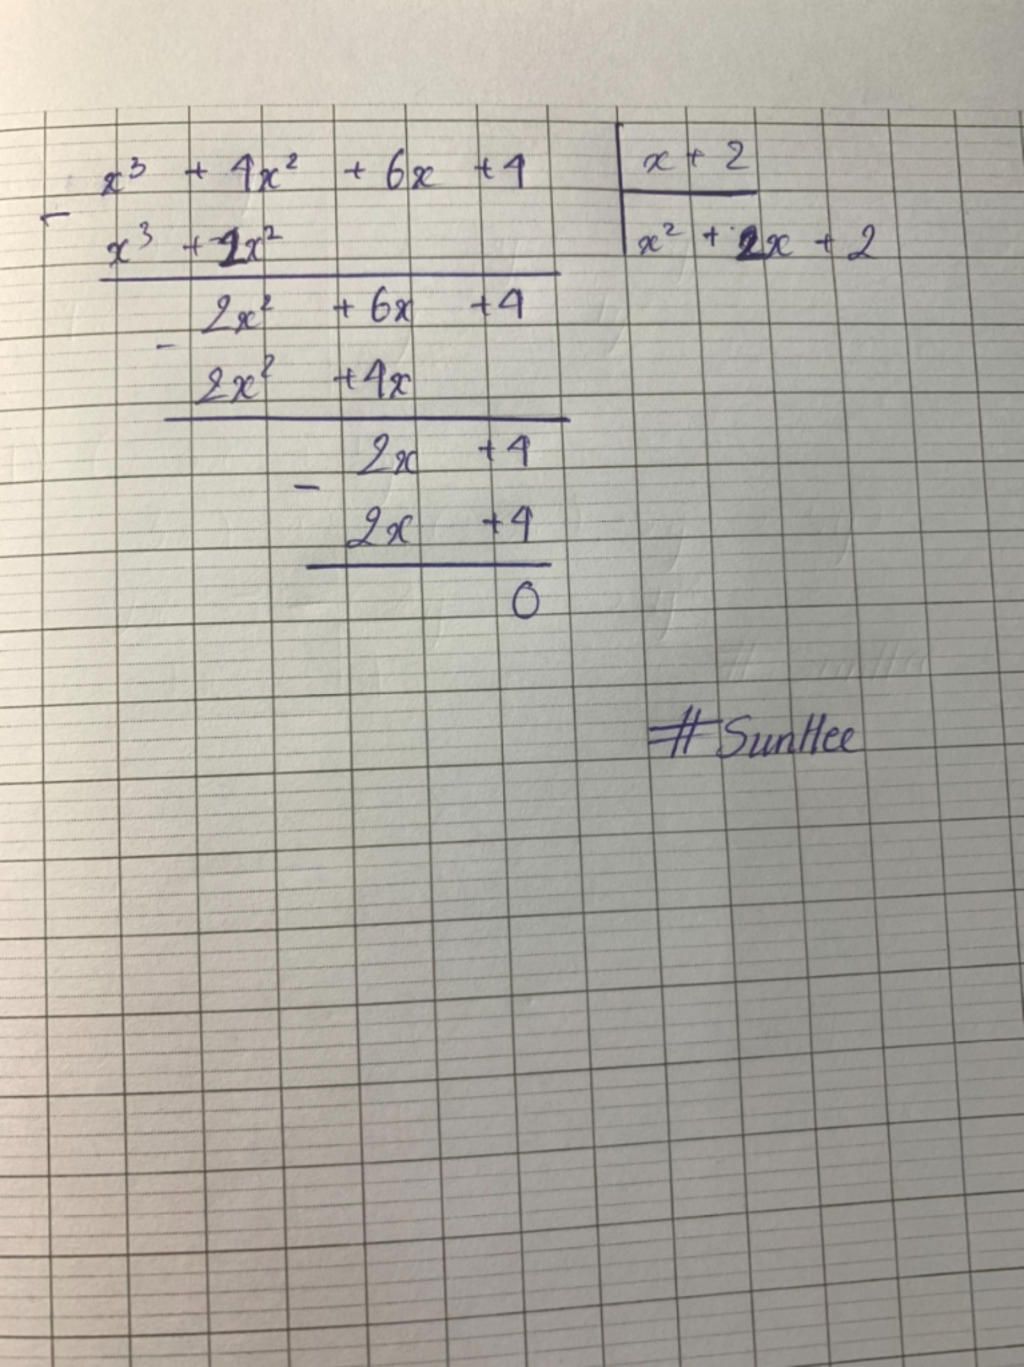 x³ + 4x² + 6x + 4 | x + 2
- x³ + 2x² | x² + 2x + 2
2x² + 6x + 4
- 2x² + 4x
2x + 4
- 2x + 4
0
# SunHee